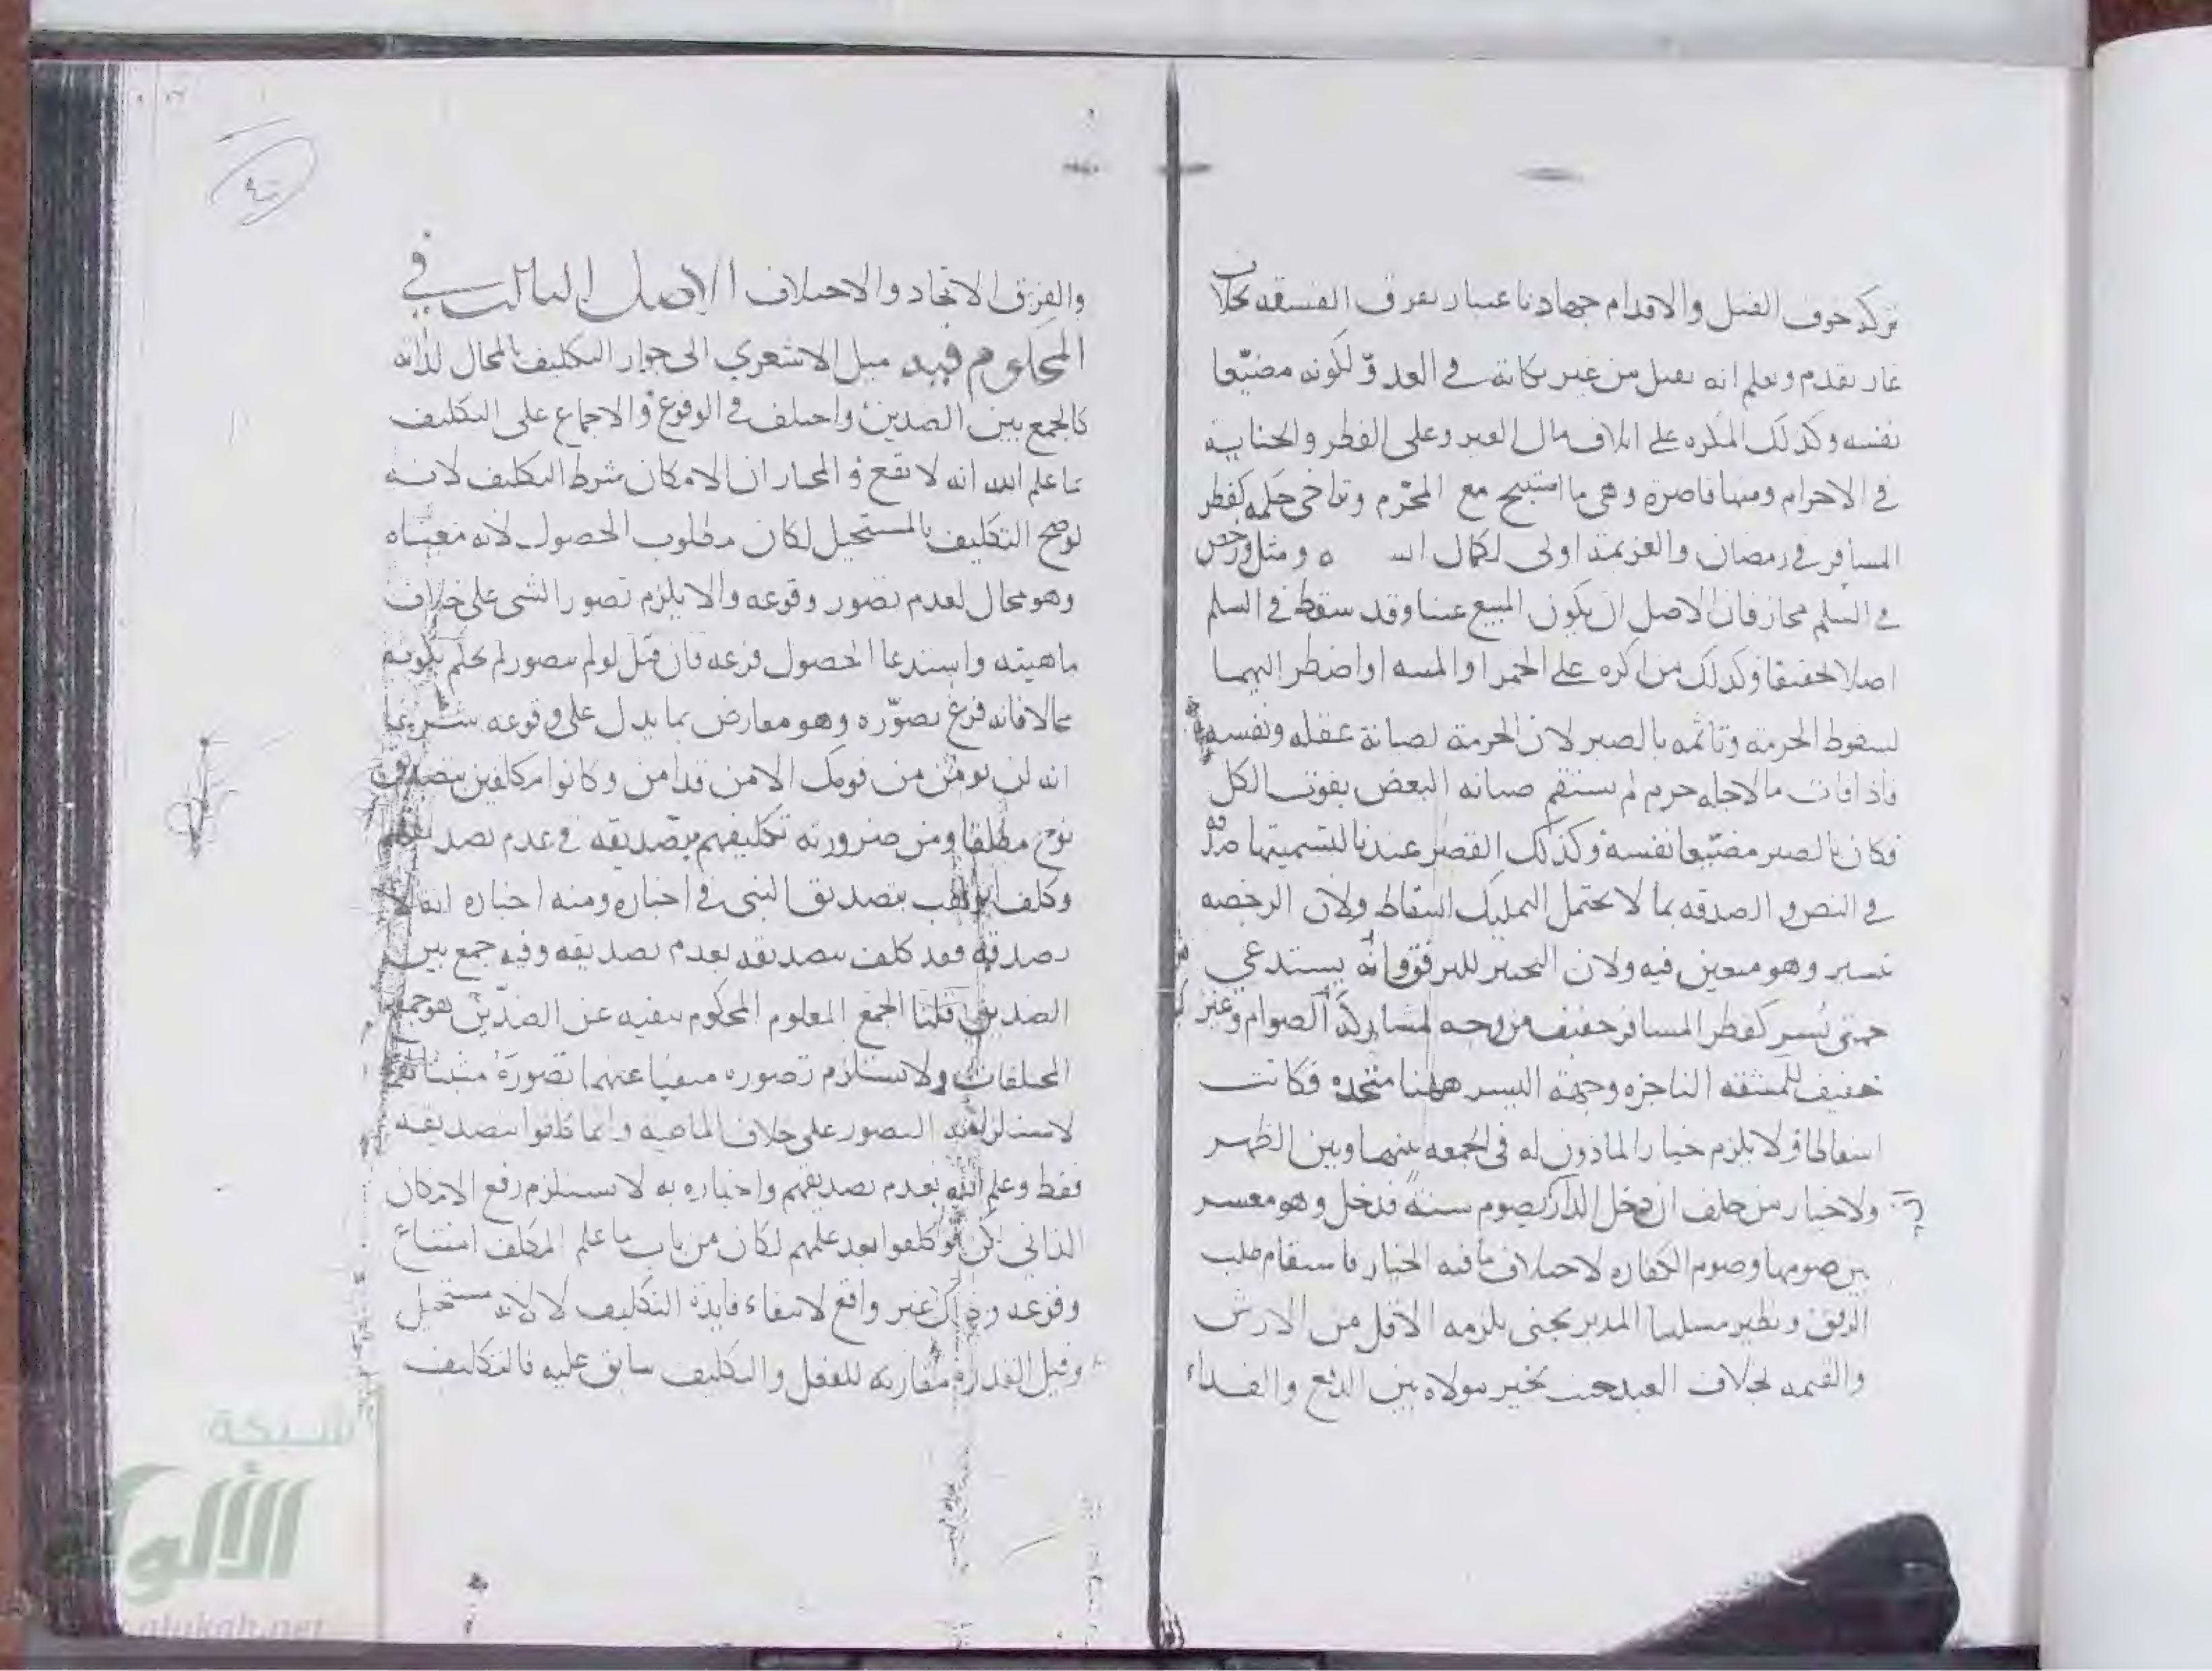 تركه خوف القتل والاقدام جهاد باعتبار تفرق الفسقه بخلاف
غاز تقدم ويعلم انه يقتل من غير نكاية في العدو لكونه مضيّعا
نفسه وكذلك المكره على اتلاف مال الغير وعلى الفطر والجناية
في الاحرام ومنها قاصرة وهي ما استبيح مع المحرّم وتراخي حكمه كفطر
المسافر في رمضان والعزيمة اولى لكمال ومثل ورخص
في السلم مجاز فان الاصل ان يكون المبيع عينا وقد سقط في السلم
اصلا تخفيفا وكذلك من اكره على الخمر او الميتة او اضطر اليهما
لسقوط الحرمة وتاثمه بالصبر لان الحرمة لصيانة عقله ونفسه
فاذا فات ما لاجله حرم لم يستقم صيانة البعض بفوت الكل
فكان بالصبر مضيّعا نفسه وكذلك القصر عندنا لتسميتها صدقة
في النص والصدقة بما لا يحتمل التمليك اسقاط ولان الرخصة
تيسير وهو متعين فيه ولان التخيير للترفق وانه يستدعي
حتى يُسر كفطر المسافر خفيف من وجه لمشاركة الصوام وغير
خفيف للمشقة الناجزة وجهة اليسر ههنا متحدة فكانت
اسقاطا ولا يلزم خيار الماذون له في الجمعة بينهما وبين الظهر
ولا خيار من حلف ان دخل الدار بصوم سنة فدخل وهو معسر
بين صومها وصوم الكفارة لاختلاف ما فيه الخيار فاستقام طلب
الرفق ونظير مسئلتنا المدبر يجني يلزمه الاقل من الارش
والقيمة بخلاف العبد حيث يخير مولاه بين الدفع والفداء
والفرق الاتحاد والاختلاف الاصل الثالث في
المحكوم فيه ميل الاشعري الى جواز التكليف بالمحال لذاته
كالجمع بين الضدين واختلف في الوقوع والاجماع على التكليف
بما علم الله انه لا يقع والمختار ان الامكان شرط التكليف لانه
لو صح التكليف بالمستحيل لكان مطلوب الحصول لانه معناه
وهو محال لعدم تصور وقوعه والا يلزم تصور الشي على خلاف
ماهيته واستدعا الحصول فرعه فان قيل لو لم يتصور لم يحكم بكونه
محالا فانه فرع تصوّره وهو معارض بما يدل على وقوعه شرعا
انه لن يومن من قومك الا من قد امن وكانوا مكلفين بتصديق
نوح مطلقا ومن ضرورته تكليفهم بتصديقه في عدم تصديقهم
وكلف ابو لهب بتصديق النبي في اخباره ومنه اخباره انه لا
يصدقه فقد كلف بتصديقه بعدم تصديقه وفيه جمع بين
الضدين قلنا الجمع المعلوم المحكوم بنفيه عن الضدّين هو جمع
المختلفات ولا يستلزم تصوره منفيا عنهما تصورَه مثبتا
لاستلزامه التصور على خلاف الماهية وانما كلفوا بتصديقه
فقط وعلم الله بعدم تصديقهم واخباره به لا يستلزم رفع الامكان
الذاتي لكن لو كلفوا بعد علمهم لكان من باب ما علم المكلف امتناع
وقوعه وذاك غير واقع لانتفاء فايدة التكليف لا لانه مستحيل
وقيل القدرة مقارنة للفعل والتكليف سابق عليه فالتكليف
شبكة
الألوكة
alukah.net